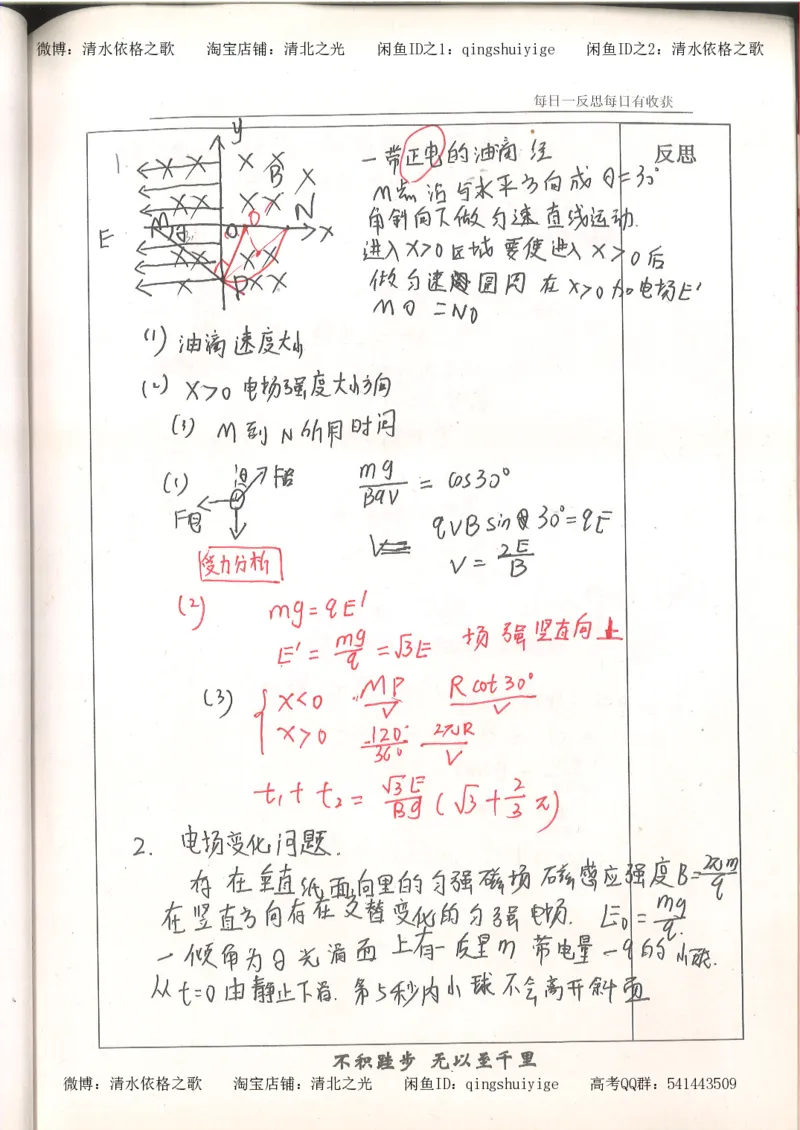 微博：清水依格之歌 淘宝店铺：清北之光 闲鱼ID之1：qingshuiyige 闲鱼ID之2：清水依格之歌
每日一反思每日有收获
反思
1.
y
B
N
M
O
x
E
P
一带正电的油滴 经
M点 沿与水平方向成θ=30°
角斜向下做匀速直线运动.
进入X>0区域 要使进入X>0后
做匀速圆周 在X>0加电场E'
MO=NO
(1) 油滴速度大小
(2) X>0 电场强度大小方向
(3) M到N所用时间
(1)
F洛
F电
mg/Bqv = cos30°
qvBsin30°=qE
V=2E/B
受力分析
(2) mg=qE'
E'=mg/q=√3E 场强竖直向上
(3) { x<0 MP/V Rcot30°/V
x>0 120°/360° 2πR/V
t₁+t₂=√3E/Bg(√3+2/3π)
2. 电场变化问题.
存在垂直纸面向里的匀强磁场 磁感应强度B=2πm/q
在竖直方向存在交替变化的匀强电场. E₀=mg/q.
一倾角为θ光滑面上有一质量m 带电量-q的小球.
从t=0由静止下滑. 第5秒内小球不会离开斜面
不积跬步 无以至千里
微博：清水依格之歌 淘宝店铺：清北之光 闲鱼ID：qingshuiyige 高考QQ群：541443509